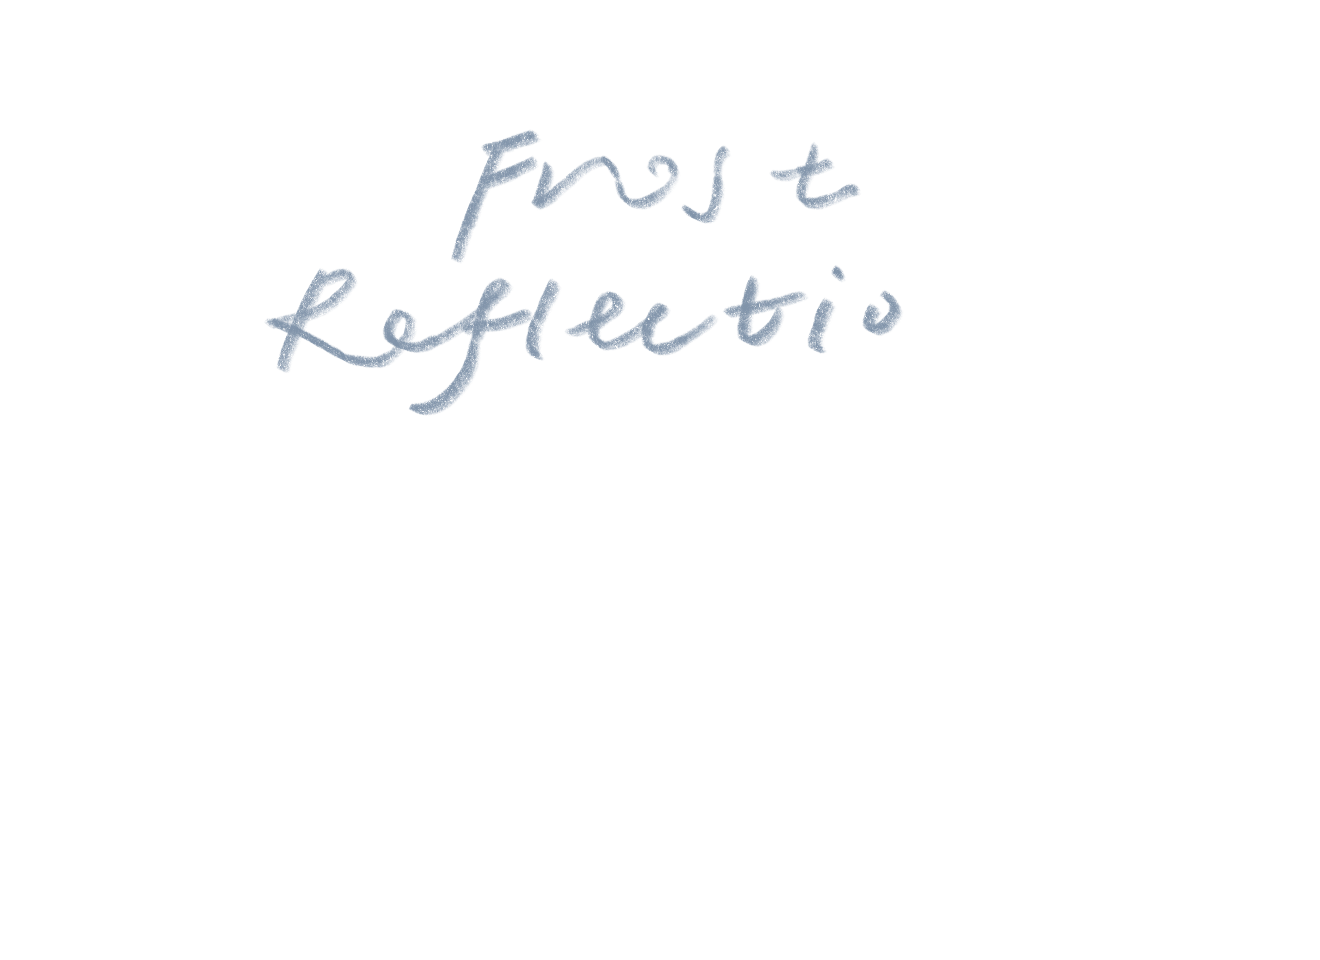 Frost
Reflectio